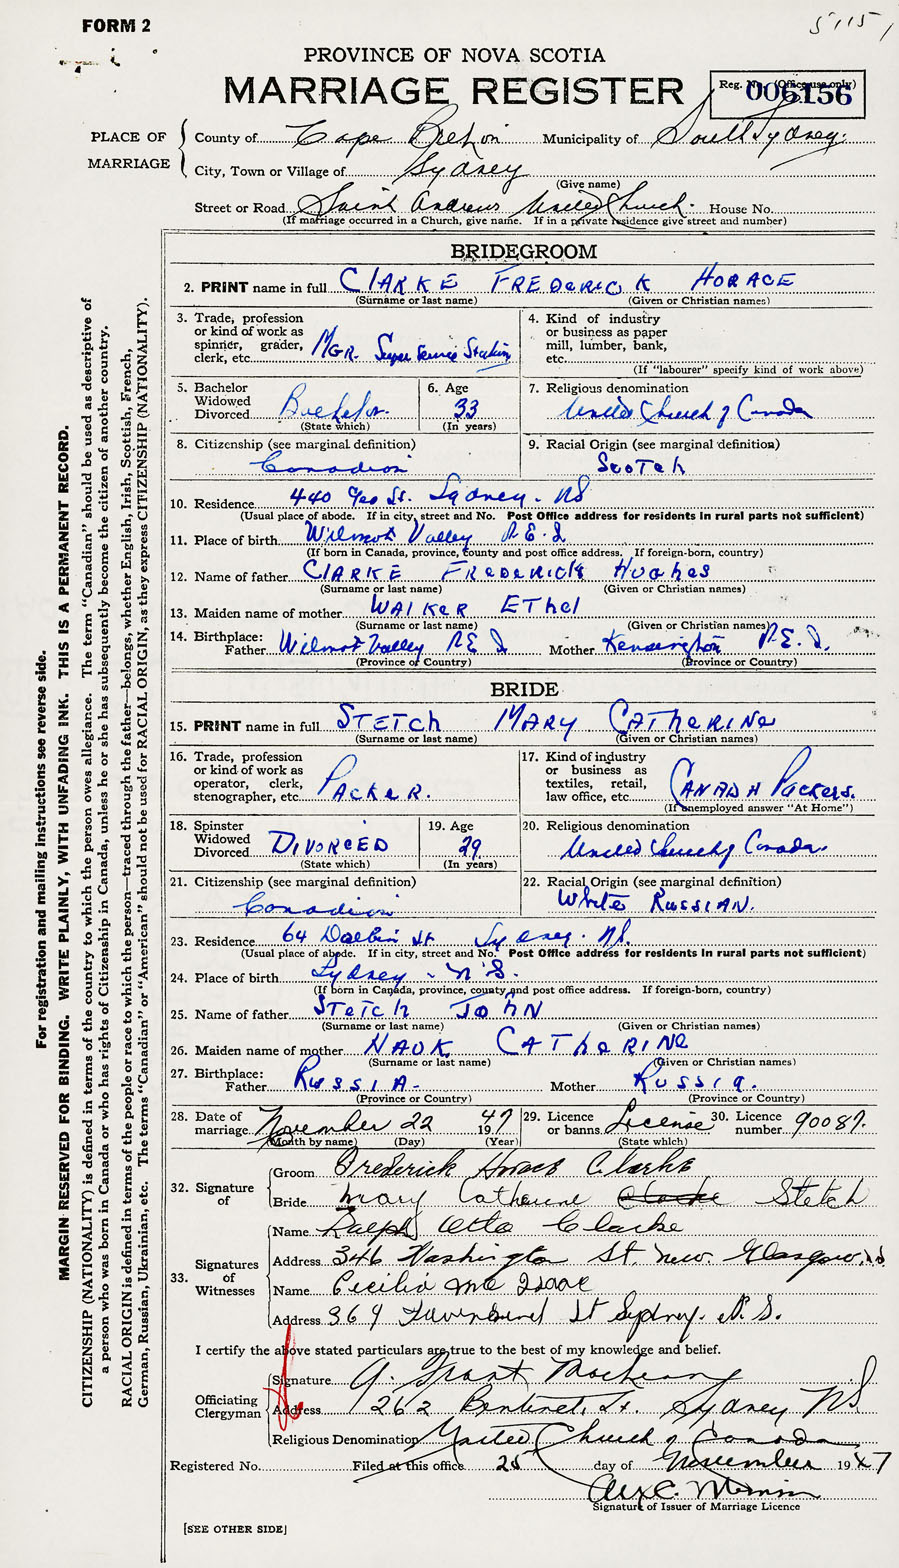 FORM 2
PROVINCE OF NOVA SCOTIA
MARRIAGE REGISTER
Reg. No. (Office use only)
006156
PLACE OF MARRIAGE
County of Cape Breton Municipality of South Sydney.
City, Town or Village of Sydney
(Give name)
Street or Road Saint Andrews United Church. House No.
(If marriage occurred in a Church, give name. If in a private residence give street and number)
BRIDEGROOM
2. PRINT name in full CLARKE FREDERICK HORACE
(Surname or last name) (Given or Christian names)
3. Trade, profession or kind of work as spinner, grader, clerk, etc. MGR. Super Service Station
4. Kind of industry or business as paper mill, lumber, bank, etc.
(If "labourer" specify kind of work above)
5. Bachelor Widowed Divorced Bachelor
(State which)
6. Age 33
(In years)
7. Religious denomination United Church of Canada
8. Citizenship (see marginal definition) Canadian
9. Racial Origin (see marginal definition) Scotch
10. Residence 440 Geo St. Sydney. NS
(Usual place of abode. If in city, street and No. Post Office address for residents in rural parts not sufficient)
11. Place of birth Wilmot Valley P.E.I
(If born in Canada, province, county and post office address. If foreign-born, country)
12. Name of father CLARKE FREDERICK HUGHES
(Surname or last name) (Given or Christian names)
13. Maiden name of mother WALKER ETHEL
(Surname or last name) (Given or Christian names)
14. Birthplace: Father Wilmot Valley P.E.I Mother Kensington P.E.I.
(Province or Country) (Province or Country)
BRIDE
15. PRINT name in full STETCH MARY CATHERINE
(Surname or last name) (Given or Christian names)
16. Trade, profession or kind of work as operator, clerk, stenographer, etc. PACKER.
17. Kind of industry or business as textiles, retail, law office, etc. CANADA PACKERS.
(If unemployed answer "At Home")
18. Spinster Widowed Divorced DIVORCED
(State which)
19. Age 29
(In years)
20. Religious denomination United Church of Canada.
21. Citizenship (see marginal definition) Canadian
22. Racial Origin (see marginal definition) White RUSSIAN.
23. Residence 64 St Sydney. NS.
(Usual place of abode. If in city, street and No. Post Office address for residents in rural parts not sufficient)
24. Place of birth Sydney - N.S.
(If born in Canada, province, county and post office address. If foreign-born, country)
25. Name of father STETCH JOHN
(Surname or last name) (Given or Christian names)
26. Maiden name of mother HAUK CATHERINE
(Surname or last name) (Given or Christian names)
27. Birthplace: Father RUSSIA. Mother RUSSIA.
(Province or Country) (Province or Country)
28. Date of marriage November 22 1947
(Month by name) (Day) (Year)
29. Licence or banns License
(State which)
30. Licence number 90087.
32. Signature of
Groom Frederick Horace Clarke
Bride Mary Catherine Clarke Stetch
33. Signatures of Witnesses
Name Ralph Otto Clarke
Address 346 Washington St. New. Glasgow, N.S
Name Cecilia Mc Isaac
Address 364 Townsend St Sydney. N.S.
I certify the above stated particulars are true to the best of my knowledge and belief.
Officiating Clergyman
Signature A. Grant
Address 262 St. Sydney NS
Religious Denomination United Church of Canada
Registered No. Filed at this office 25 day of November 1947
Signature of Issuer of Marriage Licence
[SEE OTHER SIDE]
For registration and mailing instructions see reverse side.
MARGIN RESERVED FOR BINDING. WRITE PLAINLY, WITH UNFADING INK. THIS IS A PERMANENT RECORD.
CITIZENSHIP (NATIONALITY) is defined in terms of the country to which the person owes allegiance. The term "Canadian" should be used as descriptive of
a person who was born in Canada or who has rights of Citizenship in Canada, unless he or she has subsequently become the citizen of another country.
RACIAL ORIGIN is defined in terms of the people or race to which the person—traced through the father—belongs, whether English, Irish, Scottish, French,
German, Russian, Ukrainian, etc. The terms "Canadian" or "American" should not be used for RACIAL ORIGIN, as they express CITIZENSHIP (NATIONALITY).